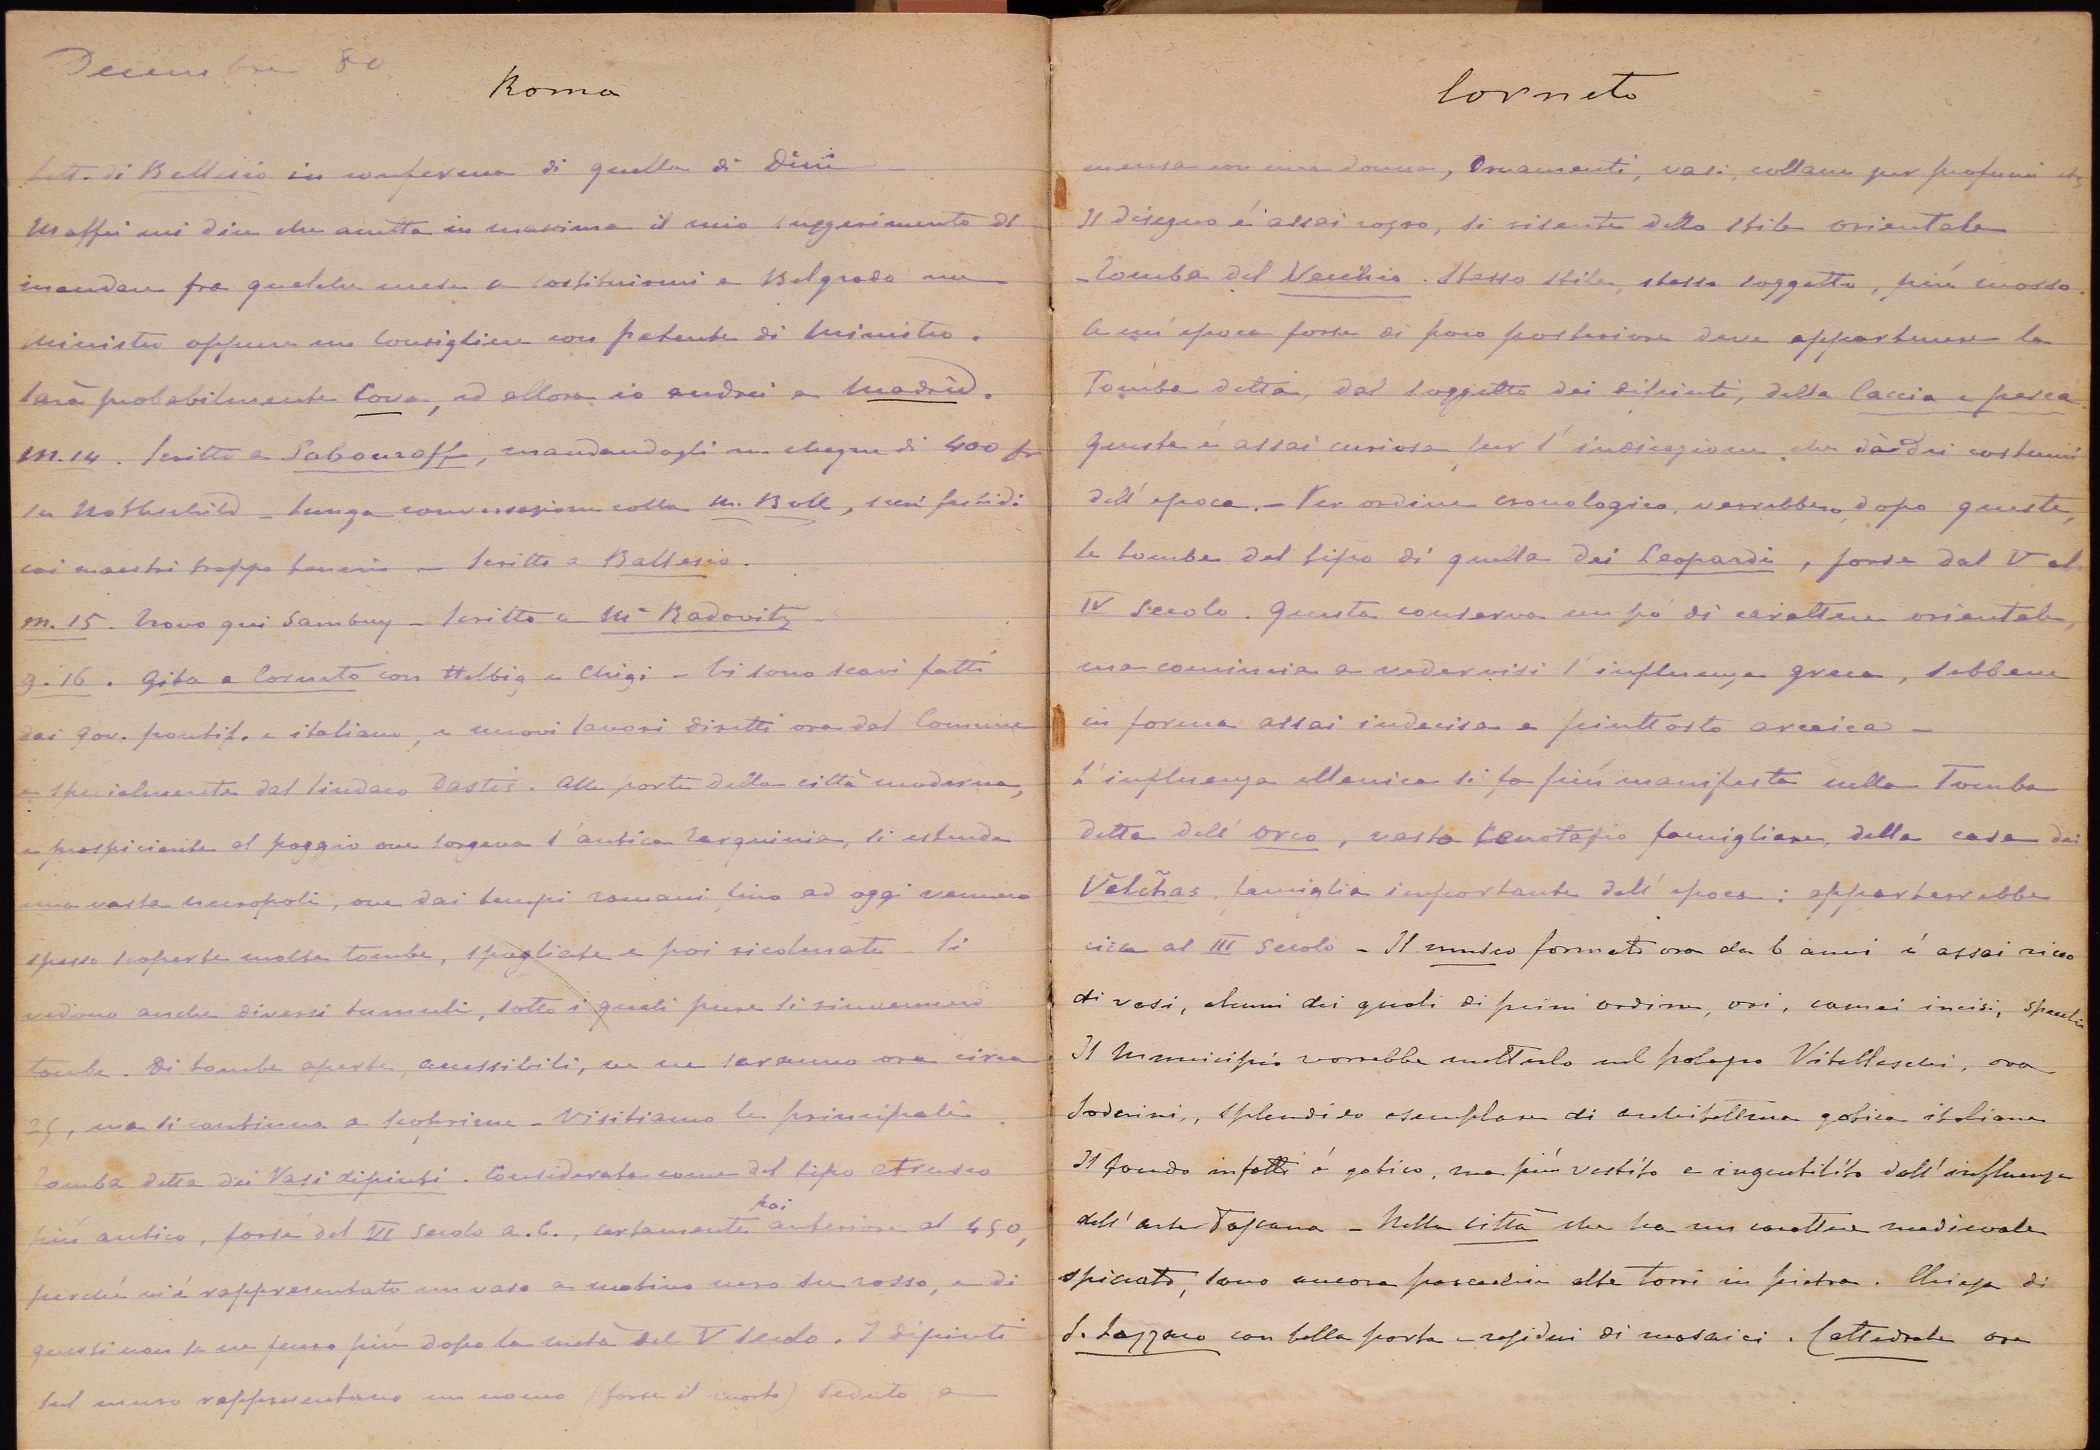 Decembre 80
Roma
lett. di Ballesio in conferma di quella di Dini
Maffei mi dice che accetta in massima il mio suggerimento di
mandare fra qualche mese a sostituirmi a Belgrado un
Ministro oppure un Consigliere con patente di Ministro.
Sarà probabilmente Cova, ed allora io andrei a Madrid.
M. 14. Scritto a Sabouroff, mandandogli un chèque di 400 fr
su Rothschild - Lunga conversazione colla M. Boll, suoi fastidi
coi maestri troppo teneri - Scritto a Ballesio.
M. 15. Trovo qui Sambuy - Scritto a Mr Radowitz -
G. 16. Gita a Corneto con Helbig e Chigi - Vi sono scavi fatti
dai gov. pontif. e italiano, e nuovi lavori diretti ora dal Comune
e specialmente dal Sindaco Dasti. Alle porte della città moderna,
e prospiciente al poggio ove sorgeva l'antica Tarquinia, si estende
una vasta necropoli, ove dai tempi romani sino ad oggi vennero
spesso scoperte molte tombe, spogliate e poi ricolmate - Si
vedono anche diversi tumuli, sotto i quali pure si rinvennero
tombe. Di tombe aperte, accessibili, ve ne saranno ora circa
25, ma si continua a scoprirne - Visitiamo le principali.
Tomba detta dei Vasi dipinti. Considerata come del tipo etrusco
più antico, forse del VI secolo a. C., certamente poi anteriore al 450,
perché vi è rappresentato un vaso a motivo nero su rosso, e di
questi non se ne fecero più dopo la metà del V secolo. I dipinti
sul muro rappresentano un uomo (forse il morto) seduto a
Corneto
mensa con una donna, Ornamenti, vasi, collane per profumi etc,
Il disegno è assai rozzo, si risente dello stile orientale
- Tomba del Vecchio. Stesso stile, stesso soggetto, più mosso.
A un'epoca forse di poco posteriore deve appartenere la
Tomba detta, dal soggetto dei dipinti, della Caccia e pesca.
Questa è assai curiosa per l'indicazione che dà dei costumi
dell'epoca. - Per ordine cronologico, verrebbero, dopo queste,
le tombe del tipo di quella dei Leopardi, forse dal V al
IV secolo. Questa conserva un pó di carattere orientale,
ma comincia a vedervisi l'influenza greca, sebbene
in forma assai indecisa e piuttosto arcaica -
L'influenza ellenica si fa più manifesta nella Tomba
detta dell'Orco, vasto Cenotafio famigliare, della casa dei
Velchas, famiglia importante dell'epoca: apparterrebbe
circa al III secolo - Il museo formato ora da 6 anni è assai ricco
di vasi, alcuni dei quali di primi ordine, ori, camei incisi, specchi
Il Municipio vorrebbe metterlo nel palazzo Vitelleschi, ora
Soderini, splendido esemplare di architettura gotica italiana
Il fondo infatti è gotico, ma più vestito e ingentilito dall'influenza
dell'arte Toscana - Nella città che ha un carattere medievale
spiccato, sono ancora parecchie alte torri in pietra. Chiesa di
S. Lazzaro con bella porta e residui di mosaici. Cattedrale ora